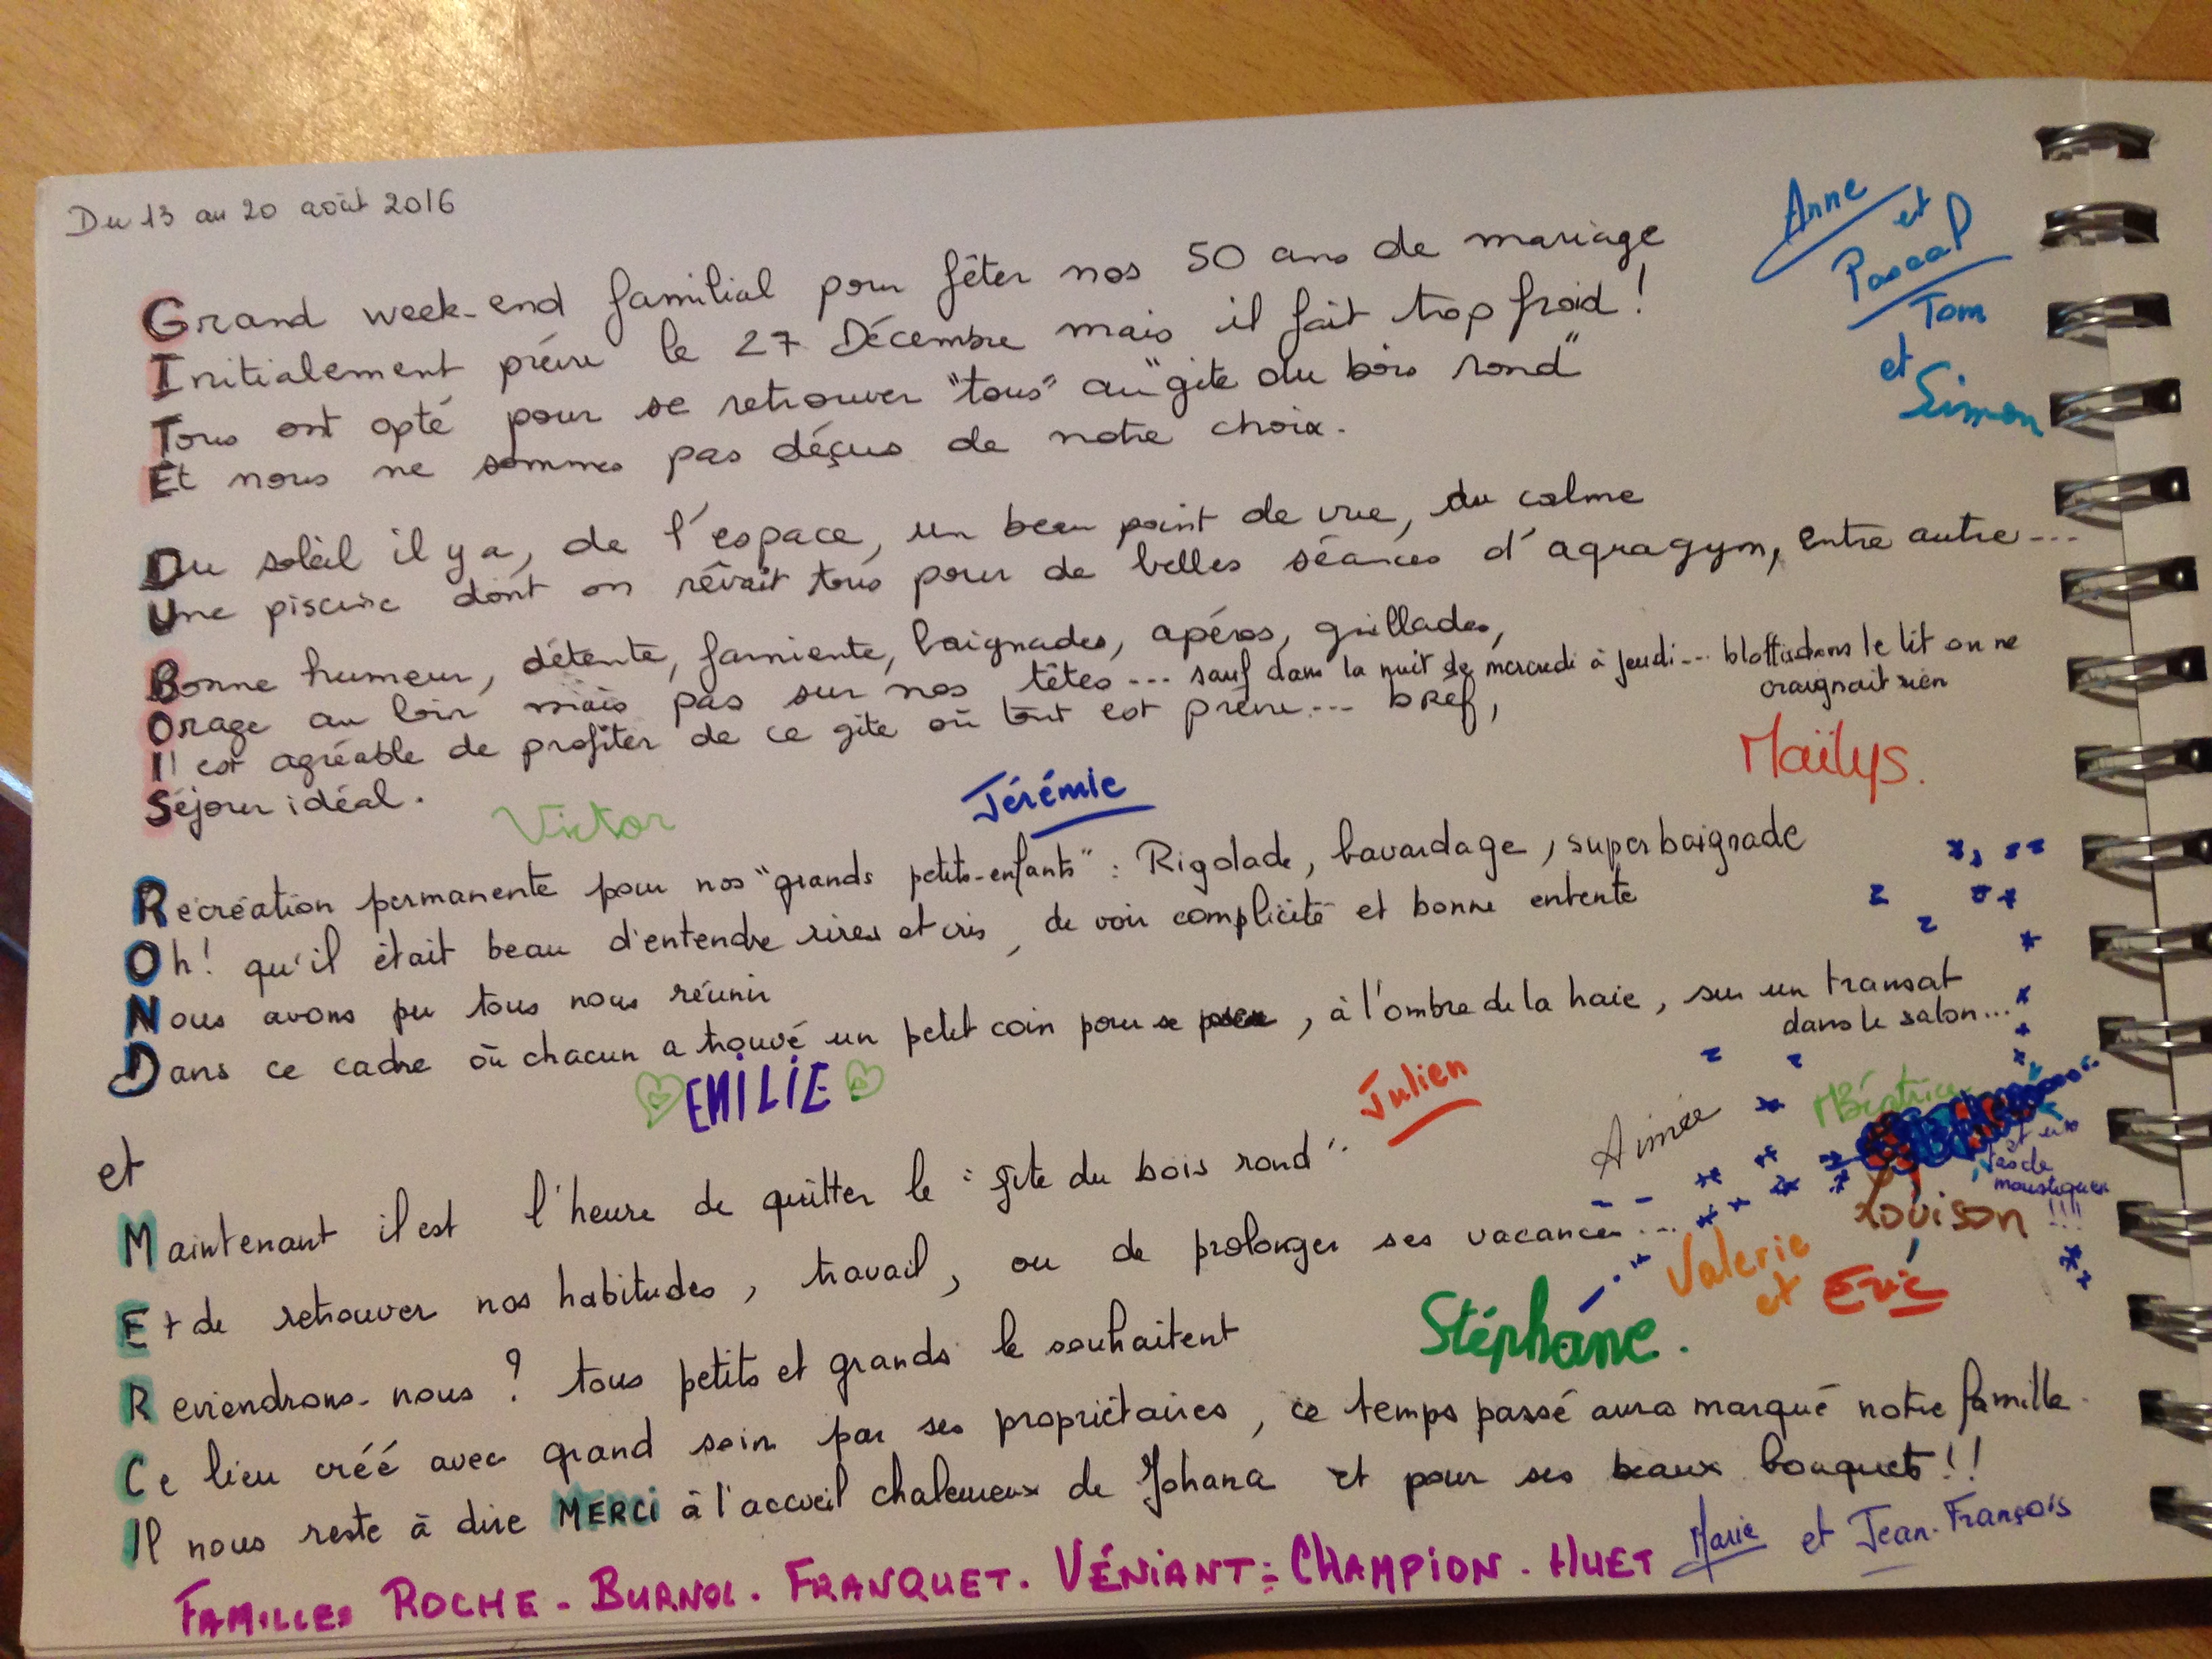 Du 13 au 20 août 2016
Anne
et
Pascal
Tom
et
Simon
Grand week-end familial pour fêter nos 50 ans de mariage
Initialement prévu le 27 Décembre mais il fait trop froid !
Tous ont opté pour se retrouver "tous" au "gite du bois rond"
Et nous ne sommes pas déçus de notre choix.
Du soleil il y a, de l'espace, un beau point de vue, du calme
Une piscine dont on rêvait tous pour de belles séances d'aquagym, entre autre...
Bonne humeur, détente, farniente, baignades, apéros, grillades,
Orage au loin mais pas sur nos têtes... sauf dans la nuit de mercredi à jeudi... blottis dans le lit on ne
craignait rien
Il est agréable de profiter de ce gite où tout est prévu... bref,
Séjour idéal.
Maïlys.
Victor
Jérémie
Recréation permanente pour nos "grands petits-enfants" : Rigolade, bavardage, super baignade
Oh! qu'il était beau d'entendre rires et cris, de voir complicité et bonne entente
Nous avons pu tous nous réunir
Dans ce cadre où chacun a trouvé un petit coin pour se , à l'ombre de la haie, sur un transat
dans le salon...
EMILIE
Julien
Aimée
Béatrice
et un
tas de
moustiques
!!!!
Louison
et
Maintenant il est l'heure de quitter le "gite du bois rond".
Valerie
et Eric
Et de retrouver nos habitudes, travail, ou de prolonger ses vacances...
Stéphane.
Reviendrons-nous ? tous petits et grands le souhaitent
Ce lieu créé avec grand soin par ses propriétaires, ce temps passé aura marqué notre famille.
Il nous reste à dire MERCi à l'accueil chaleureux de Johana et pour ses beaux bouquets !!
Marie et Jean-François
FAMILLES ROCHE - BURNOL. FRANQUET. VÉNIANT = CHAMPION. HUET